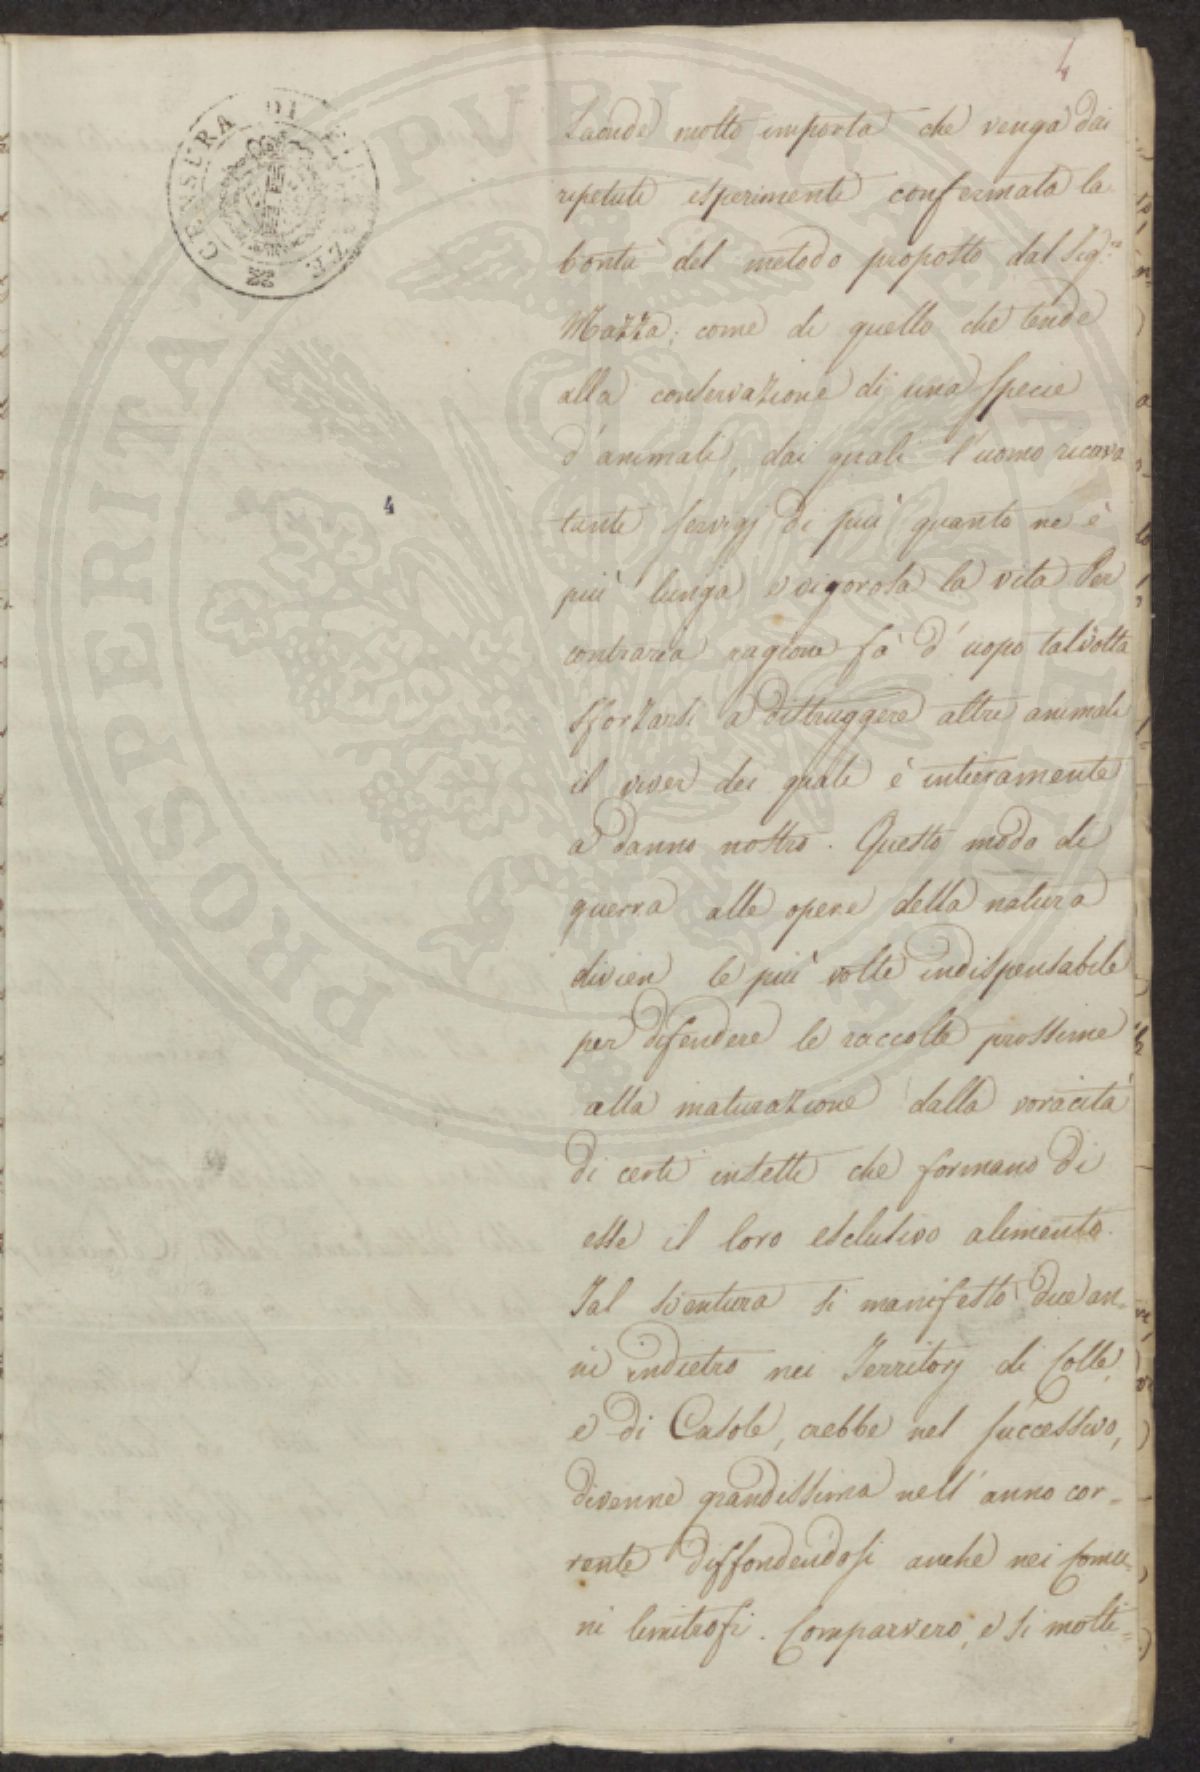 4
CENSURA DI FIRENZE
4
Laonde molto importa che venga dai
ripetuti esperimenti confermata la
bontà del metodo proposto dal Sig.re
Mazza; come di quello che tende
alla conservazione di una specie
d'animali, dai quali l'uomo ricava
tanti servigj di più quanto ne è
più lunga e vigorosa la vita Per
contraria ragione fà d'uopo talvolta
sforzarsi a distruggere altri animali
il viver dei quali è intieramente
a danno nostro. Questo modo di
guerra alle opere della natura
divien le più volte indispensabile
per difendere le raccolte prossime
alla maturazione dalla voracità
di certi insetti che formano di
esse il loro esclusivo alimento.
Tal sventura si manifestò due an=
ni indietro nei Territorj di Colle,
e di Casole, crebbe nel successivo,
divenne grandissima nell'anno cor=
rente diffondendosi anche nei Comu=
ni limitrofi. Comparvero, e si molti=
PROSPERITATI PVBLICAE AVGENDAE